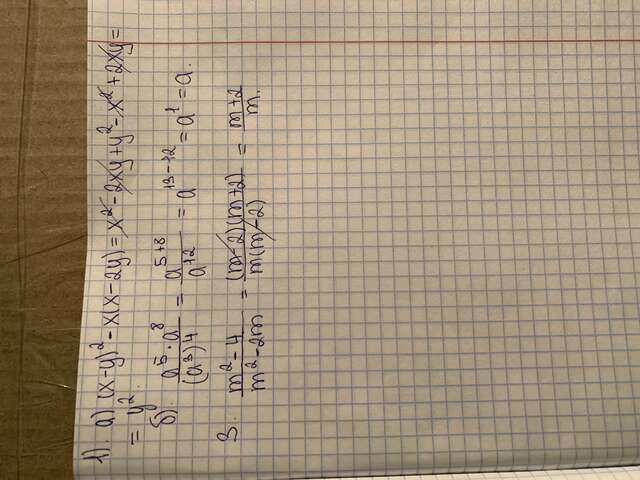 1). а) (x-y)² - x(x-2y) = x² - 2xy + y² - x² + 2xy =
= y².
б). a⁵·a⁸/(a³)⁴ = a⁵⁺⁸/a¹² = a¹³⁻¹² = a¹ = a.
3. m²-4/m²-2m = (m-2)(m+2)/m(m-2) = m+2/m.